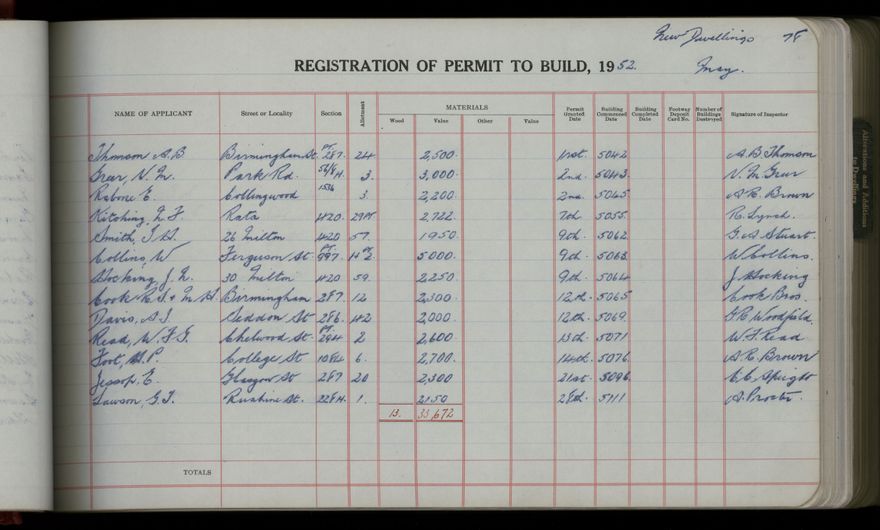 New Dwellings 78
REGISTRATION OF PERMIT TO BUILD, 1952. May.
NAME OF APPLICANT Street or Locality Section Allotment MATERIALS Permit Granted Date Building Commenced Date Building Completed Date Footway Deposit Card No. Number of Buildings Destroyed Signature of Inspector
Wood Value Other Value
Thomson A.B Birmingham St. Pt. 287. 24 2,500. 1st. 5042 A.B Thomson
Greer N.M. Park Rd. 3. 3,000. 2nd. 5043 N.M Greer
Rabone E. Collingwood 1516 3. 2,200. 2nd. 5045 A.R. Brown
Kitching, L F Rata 420 29Pt. 2,722 7th. 5055. R. Lynch.
Smith, J.A. 26 Milton 420 57. 1950. 9th. 5062 G.A Stuart.
Collins, W Ferguson St. Pt. 997. Pt. 2. 5000. 9th. 5063. W Collins.
Hocking, J. L. 30 Milton 420 59. 2250. 9th. 5064 J Hocking
Cook R.J. & M. H. Birmingham 287. 12 2,300. 12th. 5065 Cook Bros.
Davis, A.J. Seddon St 286. 42 2,000. 12th. 5069. Woodfield.
Read, W.F.G. Chelwood St. Pt. 294 2 2,600. 13th. 5071 W.F. Read.
Foot, M.P. College St 1084 6. 2,700. 14th. 5076 A.R. Brown
Jessop, E. Glasgow St 287 20 2,300 21st. 5096. Speight
Lawson, G.J. St. 228H. 1. 2150 28th. 5111 A. Procter.
13. 33,672
TOTALS
Alterations and Additions to Dwellings